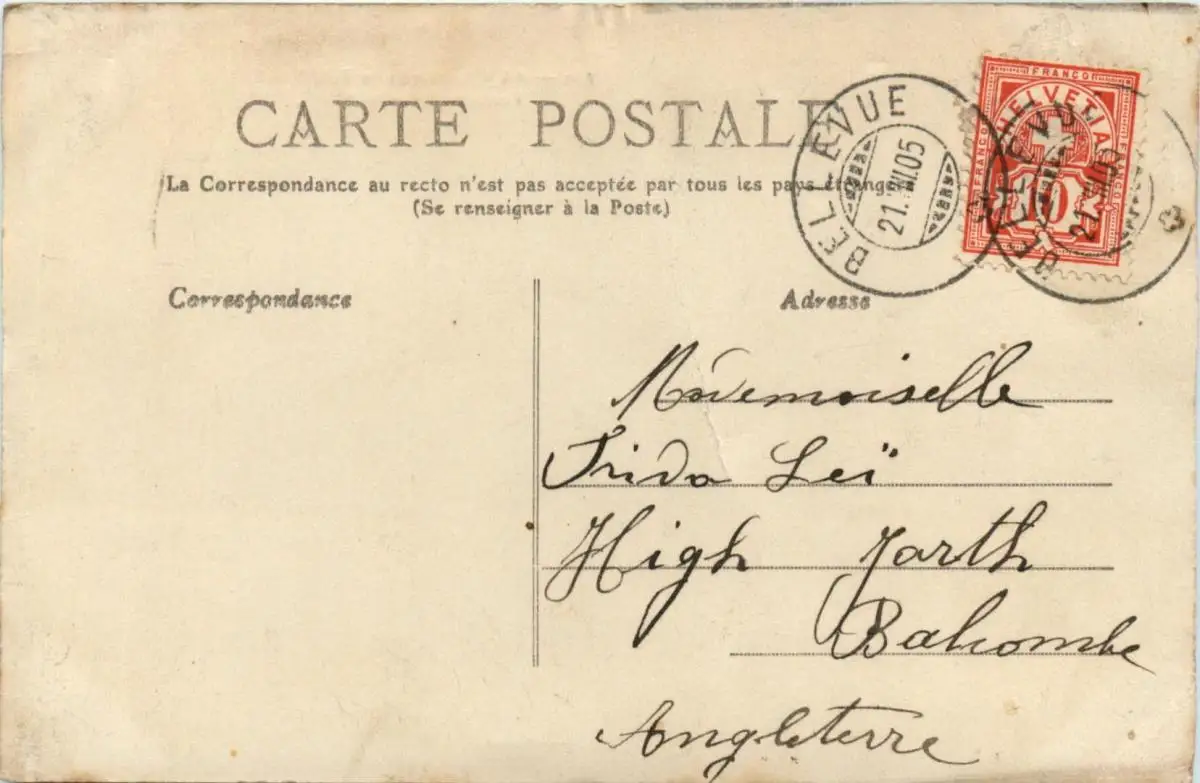 CARTE POSTALE
La Correspondance au recto n'est pas acceptée par tous les pays étrangers
(Se renseigner à la Poste)
BELLEVUE
21.VII.05
FRANCO
HELVETIA
FRANCO
FRANCO
10
BELLEVUE
21.VII.05
Correspondance
Adresse
Mademoiselle
Frida Leï
High Garth
Balcombe
Angleterre